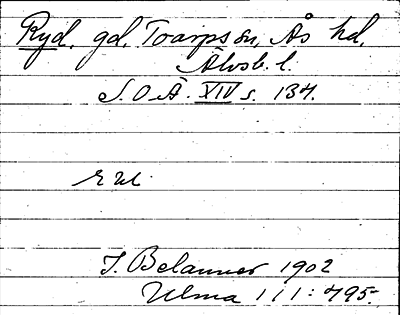 Ryd. gd, Toarps sn, Ås hd,
Älvsb. l.
S. O Ä. XIV s. 134.
r ul
J. Belanner 1902
Ulma 111:495.